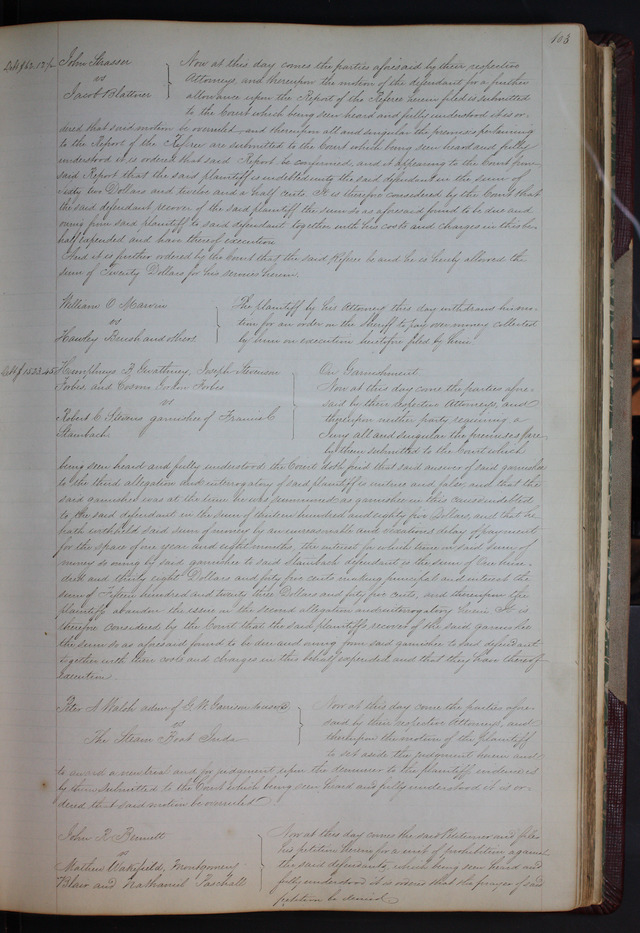 103
John Strasser
vs
Jacob Blattner
Now at this day comes the parties aforesaid by their respective
Attorneys, and thereupon the motion of the defendant for a further
allowance upon the Report of the Referee herein filed is submitted
to the Court which being seen heard and fully understood it is or-
dered that said motion be overruled and thereupon all and singular the premises pertaining
to the Report of the Referee are submitted to the Court which being seen heard and fully
understood it is ordered that said Report be confirmed, and it appearing to the Court from
said Report that the said plaintiff is indebted unto the said defendant in the sum of
sixty two Dollars and twelve and a half cents. It is therefore considered by the Court that
the said defendant recover of the said plaintiff the sum so as aforesaid found to be due and
owing from said plaintiff to said defendant together with his costs and charges in this be-
half expended and have thereof execution.
And it is further ordered by the Court that the said Referee be and he is hereby allowed the
sum of Twenty Dollars for his services herein.
William O Marvin
vs
Hawley Brush and others
The plaintiff by his Attorney this day withdraws his mo-
tion for an order on the Sheriff to pay over money collected
by him on execution heretofore filed by him.
Debt $1523.45
Humphreys B Gwathmey, Joseph Stevenson
Forbes, and Cosmo Forbes
vs
Robert C Stevens garnishee of Francis C
Stambach
On Garnishment
Now at this day come the parties afore-
said by their respective Attorneys, and
thereupon neither party requiring a
Jury all and singular the premises are
by them submitted to the Court which
being seen heard and fully understood the Court doth find that said answer of said garnishee
to the third allegation and interrogatory of said plaintiff is untrue and false and that the
said garnishee was at the time he was summoned as garnishee in this cause indebted
to the said defendant in the sum of thirteen hundred and eighty five Dollars, and that he
hath withheld said sum of money by an unreasonable and vexatious delay of payment
for the space of one year and eight months, the interest for which time on said sum of
money so owing by said garnishee to said Stambach defendant is the sum of One hun-
dred and thirty eight Dollars and forty five cents making principal and interest the
sum of Fifteen hundred and twenty three Dollars and forty five cents, and thereupon the
plaintiffs abandon the issue on the second allegation and interrogatory herein It is
therefore considered by the Court that the said plaintiffs recover of the said garnishee
the sum so as aforesaid found to be due and owing from said garnishee to said defendant
together with their costs and charges in this behalf expended, and that they have thereof
execution.
Peter A Walsh admr of G. W. Garrison
vs
The Steam Boat Juda
Now at this day come the parties afore-
said by their respective Attorneys, and
thereupon the motion of the plaintiff
to set aside the judgment herein and
to award a new trial and for judgment upon the demurrer to the plaintiff
by them submitted to the Court which being seen heard and fully understood it is or-
dered that said motion be overruled.
John R Bennett
vs
Mathew Wakefield, Montgomery
Blair and Nathaniel Paschall
Now at this day comes the said Petitioner and files
his petition herein for a writ of prohibition against
the said defendants, which being seen heard and
fully understood it is ordered that the prayer of said
petition be denied.